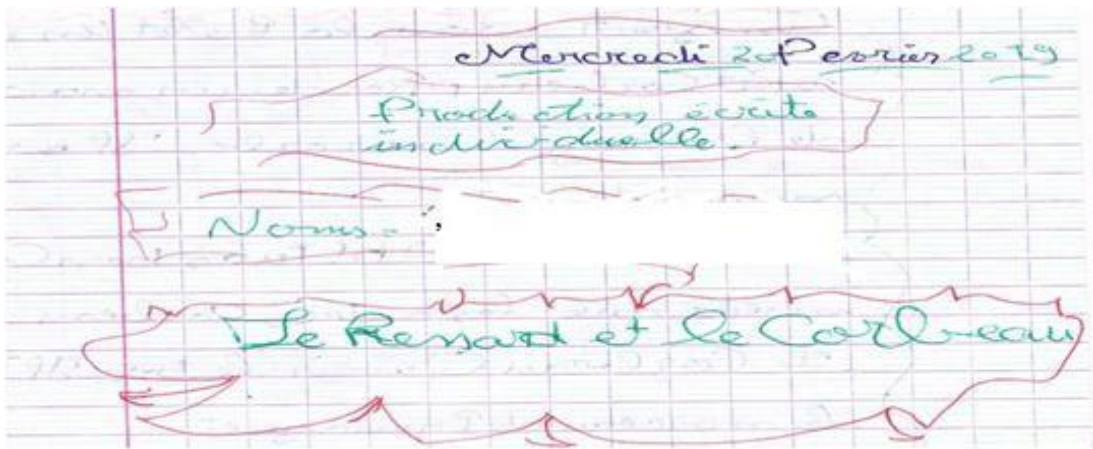 Mercredi 20 Pevrier 2019
Production écrite
individuelle.
Noms:
Le Renard et le Corbeau